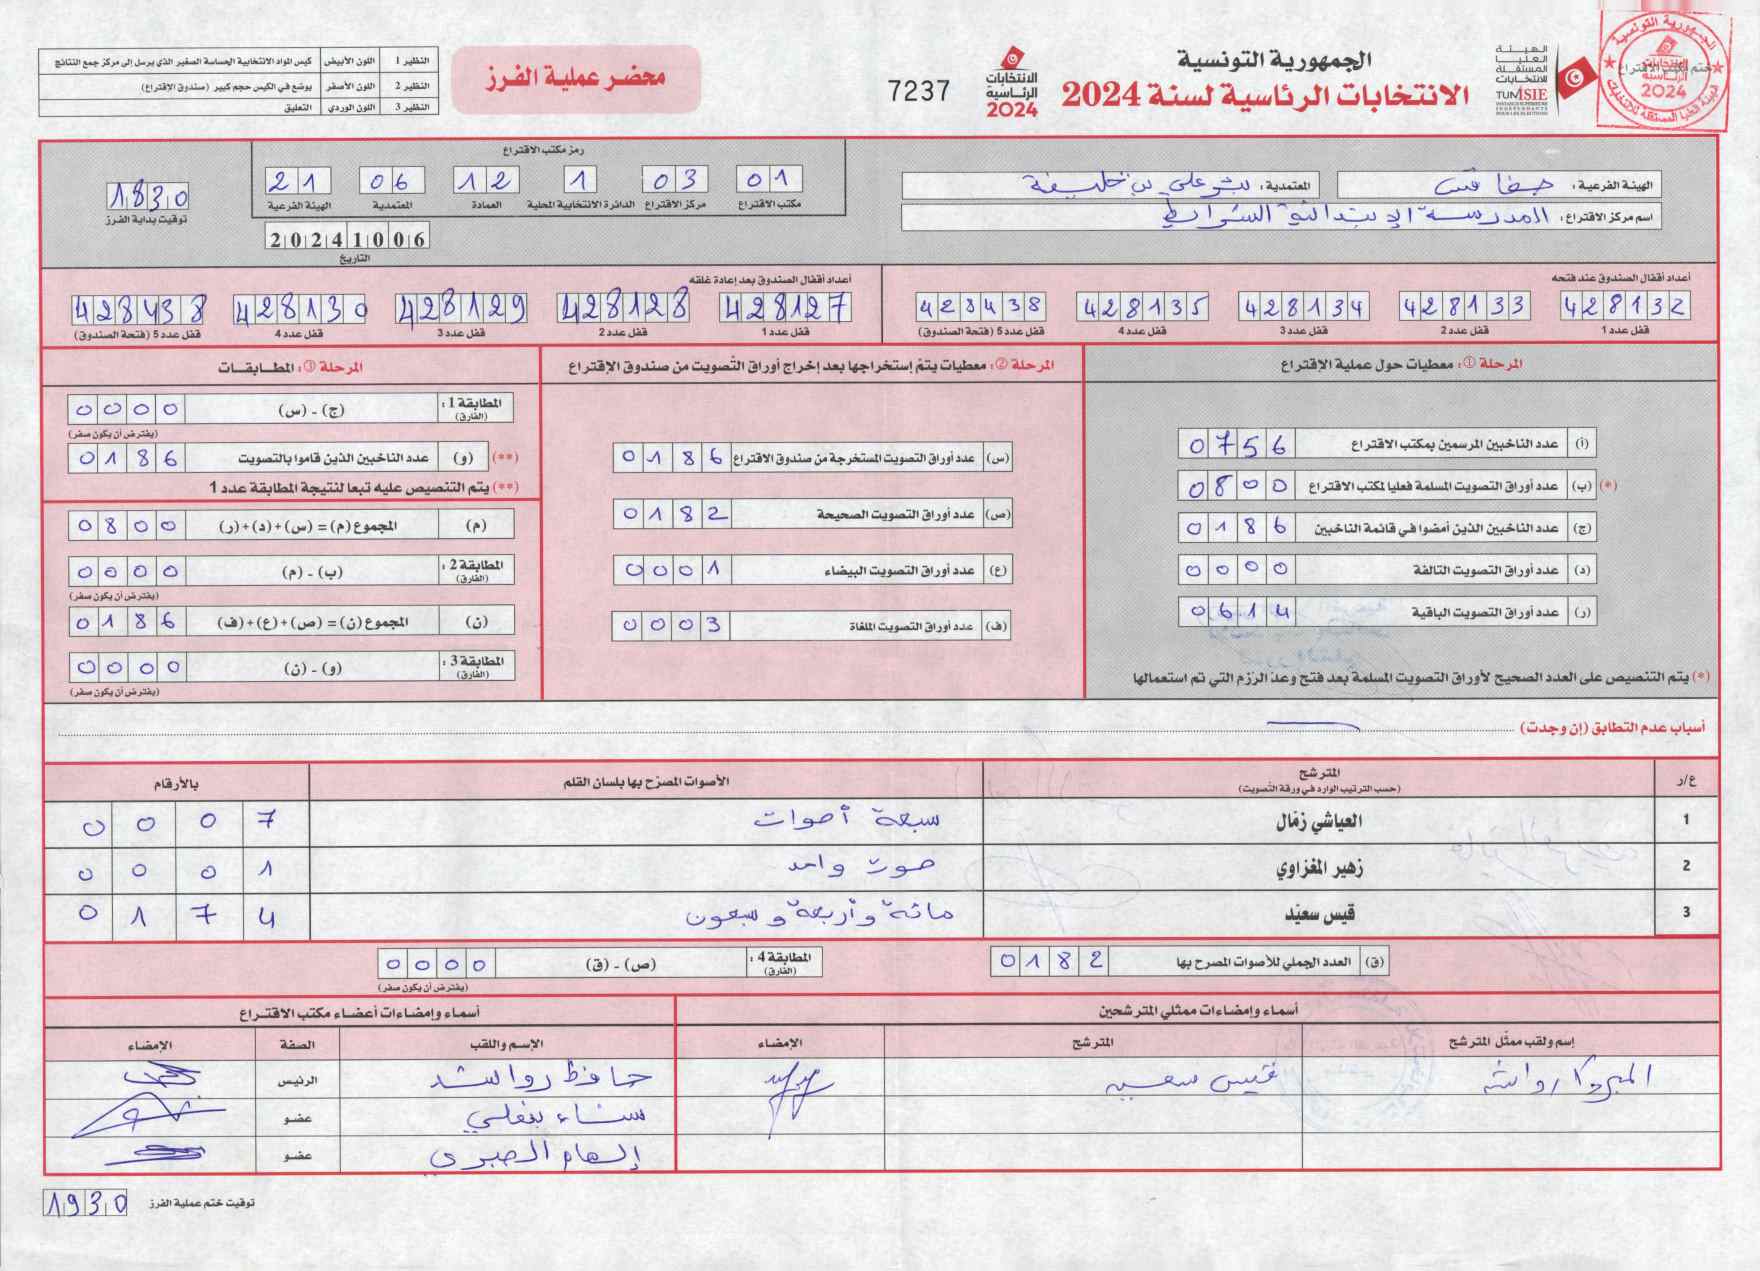 الجمهورية التونسية
الانتخابات الرئاسية لسنة 2024
الهيئة
العليا
المستقلة
للانتخابات
TUNISIE
INSTANCE SUPÉRIEURE
INDÉPENDANTE
POUR LES ÉLECTIONS
ختم مكتب الاقتراع
الجمهورية التونسية
الانتخابات
الرئاسية
2024
الانتخابات
الرئاسية
2024
7237
محضر عملية الفرز
النظير 1 اللون الأبيض كيس المواد الانتخابية الحساسة الصغير الذي يرسل إلى مركز جمع النتائج
النظير 2 اللون الأصفر يوضع في الكيس حجم كبير (صندوق الإقتراع)
النظير 3 اللون الوردي التعليق
الهيئة الفرعية: صفاقس
المعتمدية: بئر علي بن خليفة
اسم مركز الاقتراع: المدرسة الابتدائية الشرايط
رمز مكتب الاقتراع
01 03 1 12 06 21
مكتب الاقتراع مركز الاقتراع الدائرة الانتخابية المحلية العمادة المعتمدية الهيئة الفرعية
20241006
التاريخ
1830
توقيت بداية الفرز
أعداد أقفال الصندوق عند فتحه
428132 428133 428134 428135 428438
قفل عدد 1 قفل عدد 2 قفل عدد 3 قفل عدد 4 قفل عدد 5 (فتحة الصندوق)
أعداد أقفال الصندوق بعد إعادة غلقه
428127 428128 428129 428130 428438
قفل عدد 1 قفل عدد 2 قفل عدد 3 قفل عدد 4 قفل عدد 5 (فتحة الصندوق)
المرحلة ①: معطيات حول عملية الإقتراع
(أ) عدد الناخبين المرسمين بمكتب الاقتراع 0756
(*) (ب) عدد أوراق التصويت المسلمة فعليا لمكتب الاقتراع 0800
(ج) عدد الناخبين الذين أمضوا في قائمة الناخبين 0186
(د) عدد أوراق التصويت التالفة 0000
(ر) عدد أوراق التصويت الباقية 0614
(*) يتم التنصيص على العدد الصحيح لأوراق التصويت المسلمة بعد فتح وعد الرزم التي تم استعمالها
المرحلة ②: معطيات يتم إستخراجها بعد إخراج أوراق التصويت من صندوق الإقتراع
(س) عدد أوراق التصويت المستخرجة من صندوق الاقتراع 0186
(ص) عدد أوراق التصويت الصحيحة 0182
(ع) عدد أوراق التصويت البيضاء 0001
(ف) عدد أوراق التصويت الملغاة 0003
المرحلة ③: المطابقات
المطابقة 1: (الفارق) (ج) - (س) 0000
(يفترض أن يكون صفر)
(**) (و) عدد الناخبين الذين قاموا بالتصويت 0186
(**) يتم التنصيص عليه تبعا لنتيجة المطابقة عدد 1
(م) المجموع (م) = (س)+(د)+(ر) 0800
المطابقة 2: (الفارق) (ب) - (م) 0000
(يفترض أن يكون صفر)
(ن) المجموع (ن) = (ص)+(ع)+(ف) 0186
المطابقة 3: (الفارق) (و) - (ن) 0000
(يفترض أن يكون صفر)
أسباب عدم التطابق (إن وجدت)
ع/ر المترشح الأصوات المصرح بها بلسان القلم بالأرقام
(حسب الترتيب الوارد في ورقة التصويت)
1 العياشي زمّال سبعة أصوات 0007
2 زهير المغزاوي صوت واحد 0001
3 قيس سعيّد مائة وأربعة وسبعون 0174
(ق) العدد الجملي للأصوات المصرح بها 0182
المطابقة 4: (الفارق) (ص) - (ق) 0000
(يفترض أن يكون صفر)
أسماء وإمضاءات ممثلي المترشحين
إسم ولقب ممثّل المترشح المترشح الإمضاء
قيس سعيد
أسماء وإمضاءات أعضاء مكتب الاقتراع
الإسم واللقب الصفة الإمضاء
حافظ رواشد الرئيس
سناء عضو
إلهام الصبري عضو
توقيت ختم عملية الفرز 1930